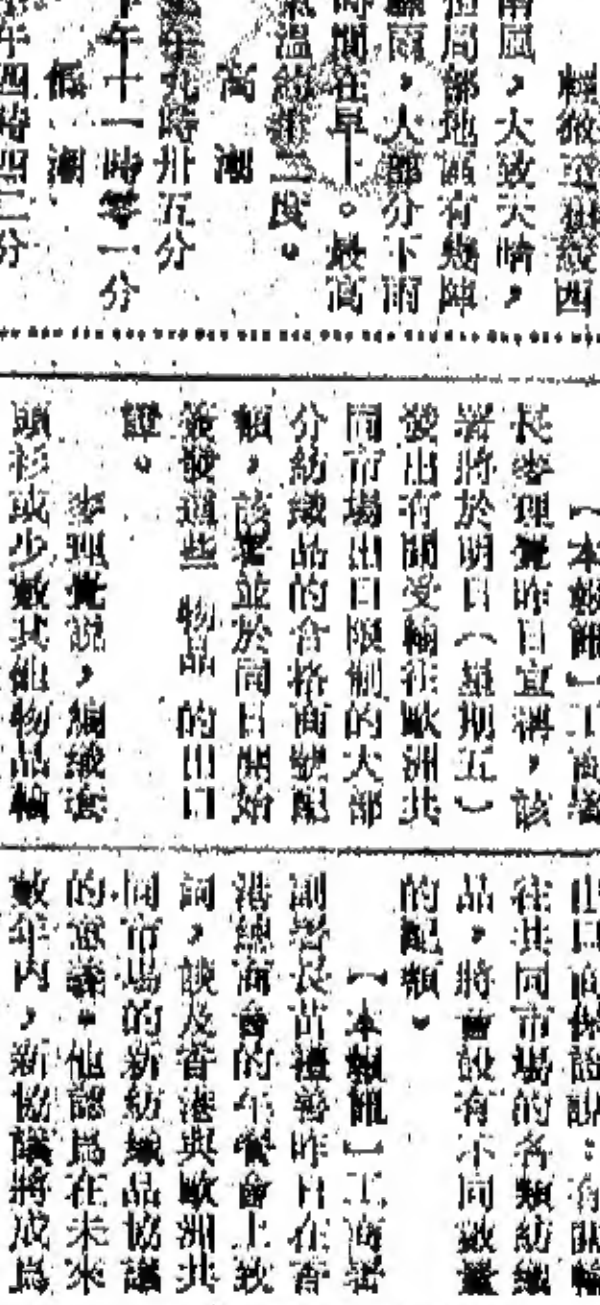 南風，大致天晴，
但局部地區有幾陣
驟雨，大部分下雨
時間在早上。最高
氣溫約卅二度。
高潮
九時卅五分
下午十一時零一分
低潮
午四時四二分
【本報訊】工商署
長麥理覺昨日宣稱，該
署將於明日（星期五）
發出有關受輸往歐洲共
同市場出口限制的大部
分紡織品的合格商號配
額，該署並於同日開始
簽發這些物品的出口
證。
麥理覺說，編織套
頭衫或少數其他物品輸
往共同市場的各類紡織
品，將會設有不同數量
的配額。
【本報訊】工商署
副署長苗禮善昨日在香
港總商會的午餐會上致
詞，談及香港與歐洲共
同市場的新紡織品協議
的意義。他認爲在未來
數年內，新協議將成爲